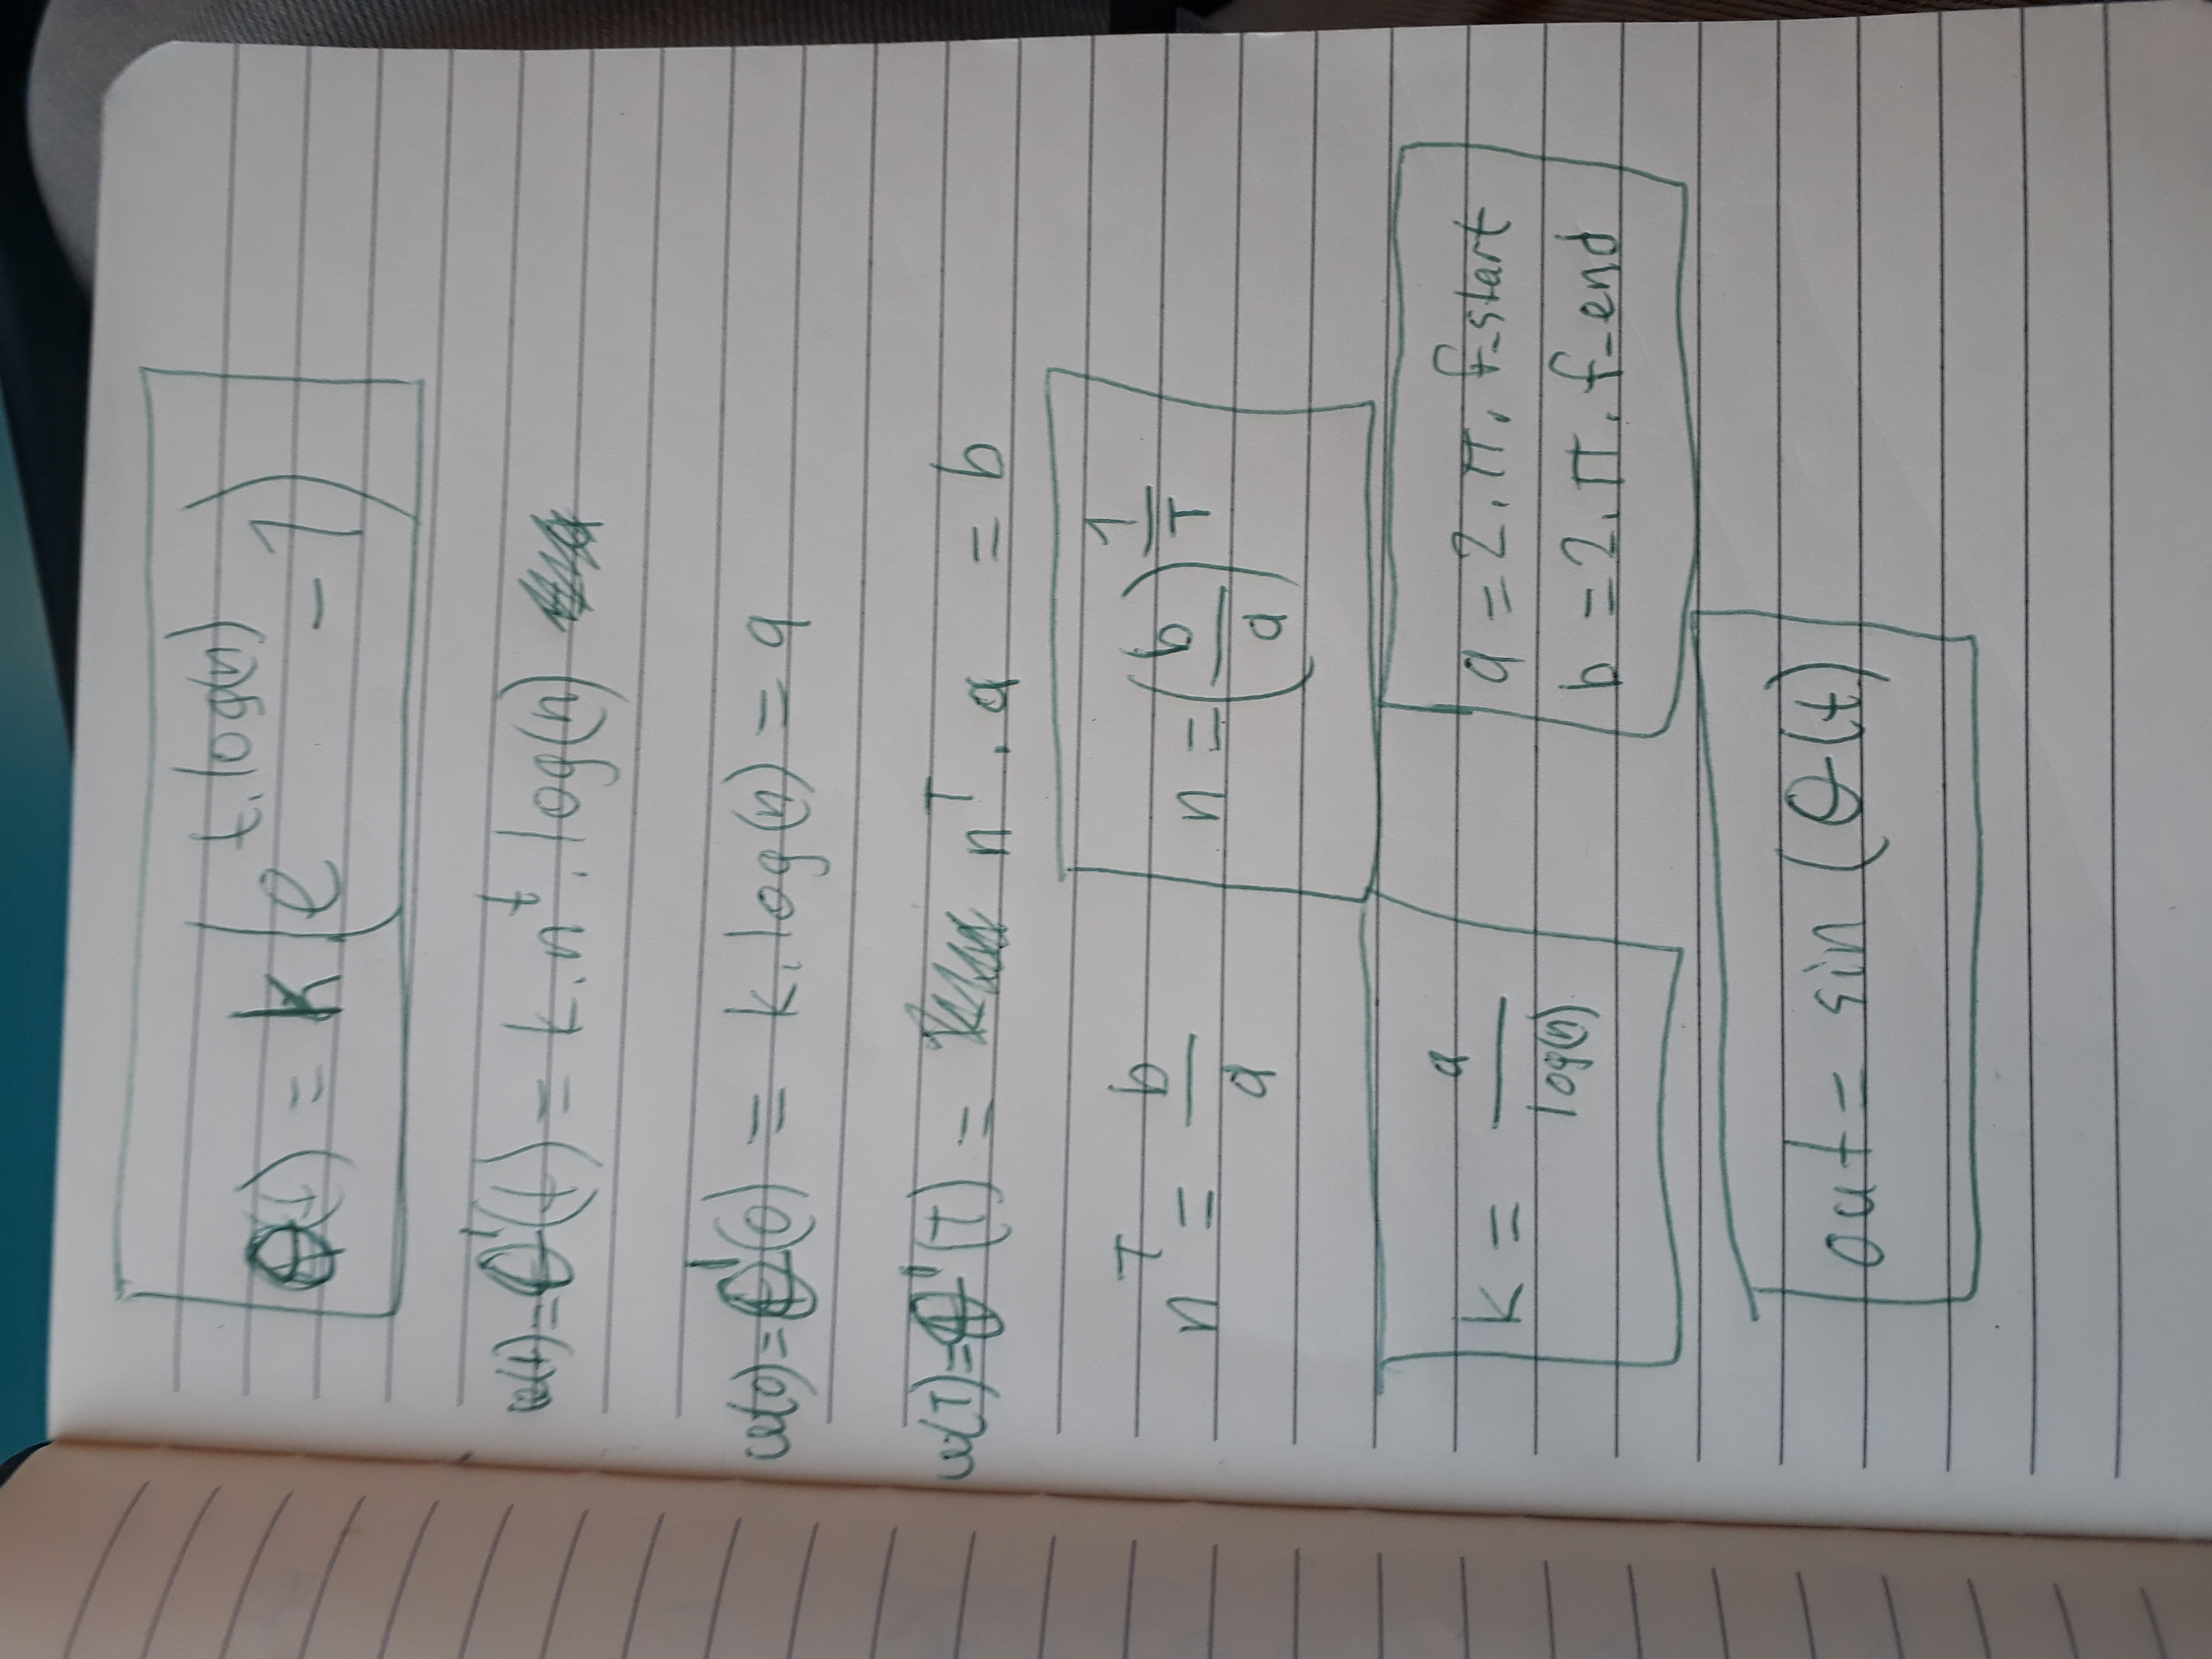 θ(t) = k(e^(t.log(n)) - 1)
ω(t) = θ'(t) = k.n^t.log(n)
ω(0) = θ'(0) = k.log(n) = a
ω(T) = θ'(T) = n^T . a = b
n^T = b/a
n = (b/a)^(1/T)
k = a/log(n)
a = 2.π.f_start
b = 2.π.f_end
out = sin(θ(t)